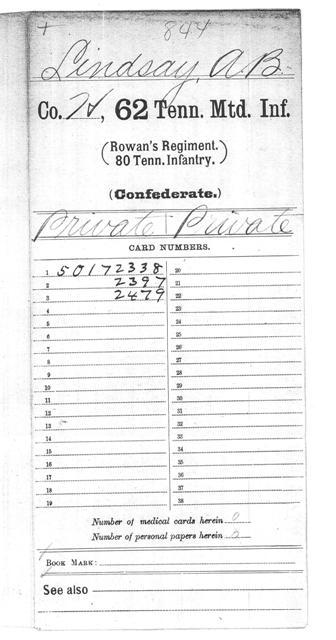 + 844
Lindsay, A B.
Co. H, 62 Tenn. Mtd. Inf.
(Rowan's Regiment.
80 Tenn. Infantry.)
(Confederate.)
Private | Private
CARD NUMBERS.
1 50172338 20
2 2397 21
3 2479 22
4 23
5 24
6 25
7 26
8 27
9 28
10 29
11 30
12 31
13 32
14 33
15 34
16 35
17 36
18 37
19 38
Number of medical cards herein 0
Number of personal papers herein 0
BOOK MARK:
See also